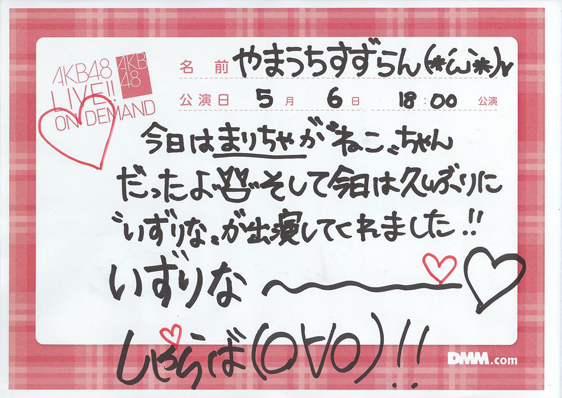 AKB48
LIVE!!
ON DEMAND
AKB
48
名前 やまうちすずらん(*´ω`*)
公演日 5月 6日 18:00 公演
今日はまりちゃが"ねこ"ちゃん
だったよ そして今日は久しぶりに
"いずりな"が出演してくれました!!
いずりな
しゃらば(O∀O)!!
DMM.com